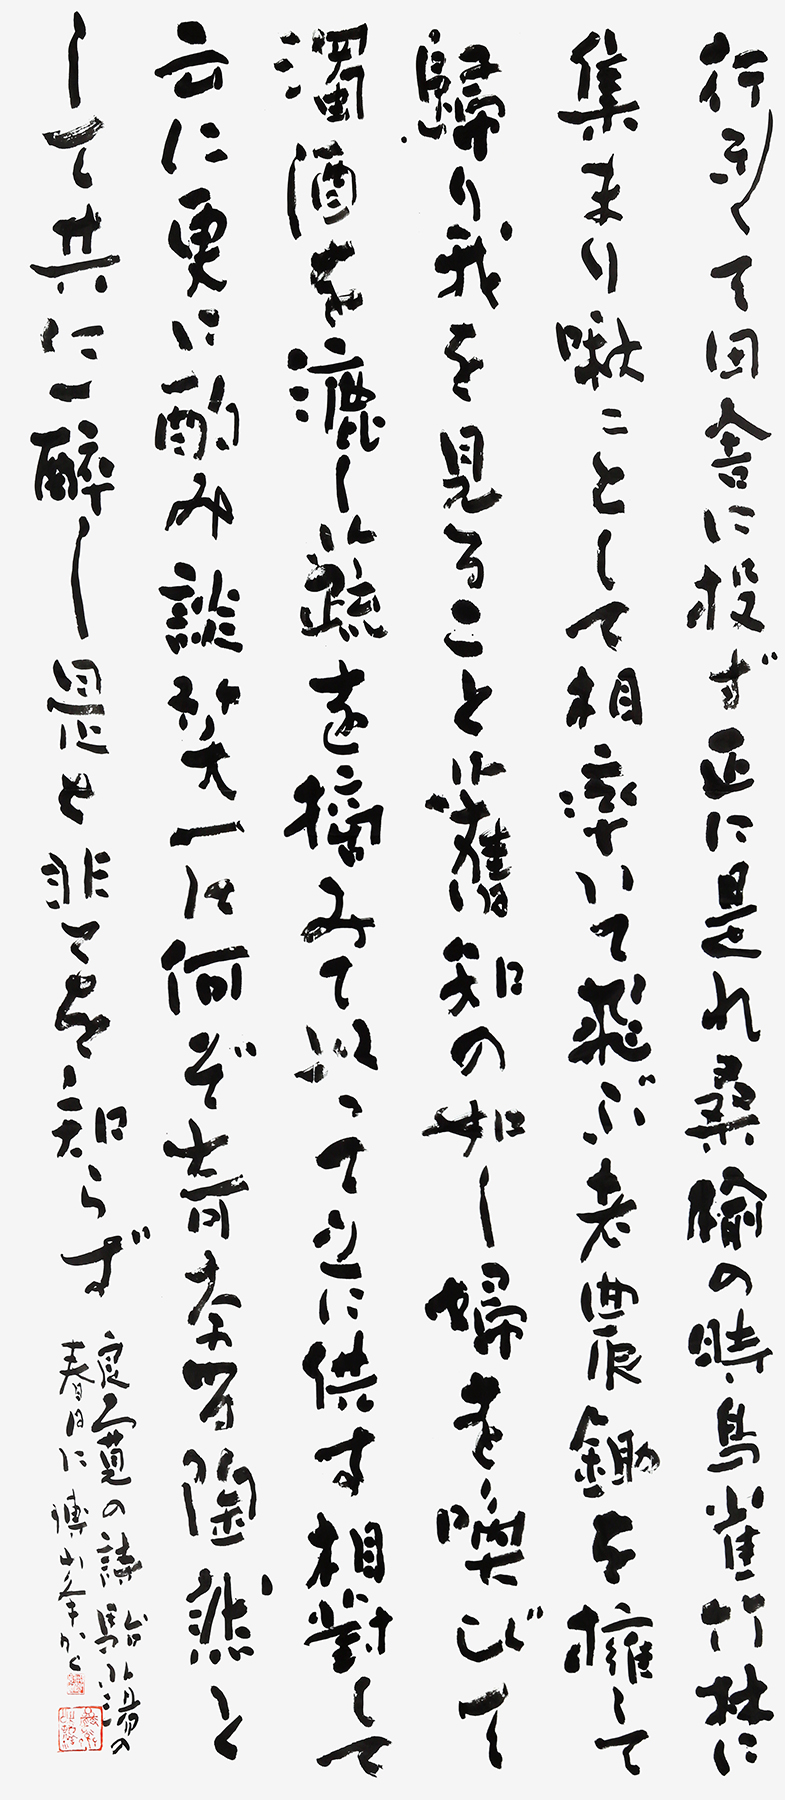 行き行きて田舎に投ず正に是れ桑楡の時鳥雀竹林に
集まり啾こととして相率いて飛ぶ老農鋤を擁して
歸り我を見ること舊知の如し婦を喚びて
濁酒を漉し蔬を摘みて以って之に供す相對して
云に更に酌み談笑一に何ぞ奇なる陶然と
して共に一醉し是と非とを知らず
良寛の詩駘蕩の
春日に